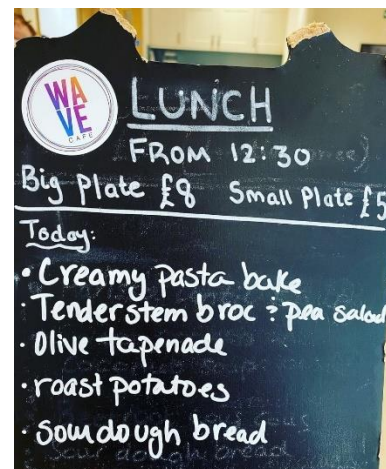 WA
VE
CAFE
LUNCH
FROM 12:30
Big Plate £8 Small Plate £5
Today:
• Creamy pasta bake
• Tenderstem broc & pea salad
• Olive tapenade
• roast potatoes
• sourdough bread